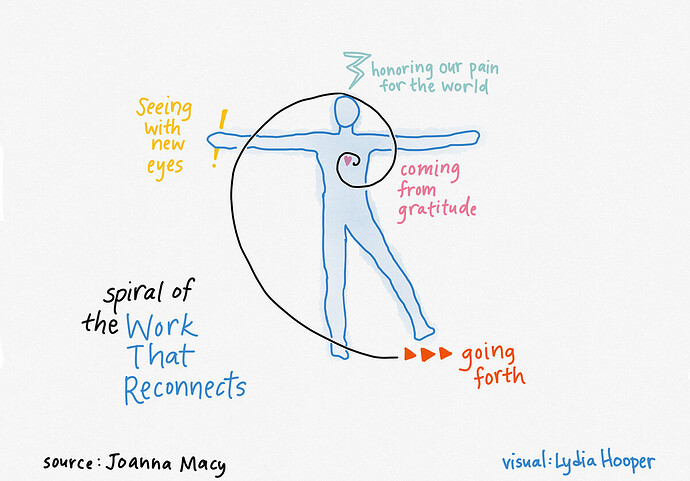 honoring our pain
for the world
Seeing
with
new
eyes
coming
from
gratitude
spiral of
the Work
That
Reconnects
going
forth
source: Joanna Macy
visual: Lydia Hooper